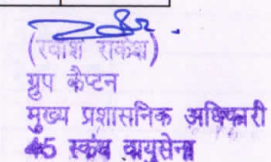 ग्रुप कैप्टन
मुख्य प्रशासनिक अधिकारी
45 स्कंध वायुसेना